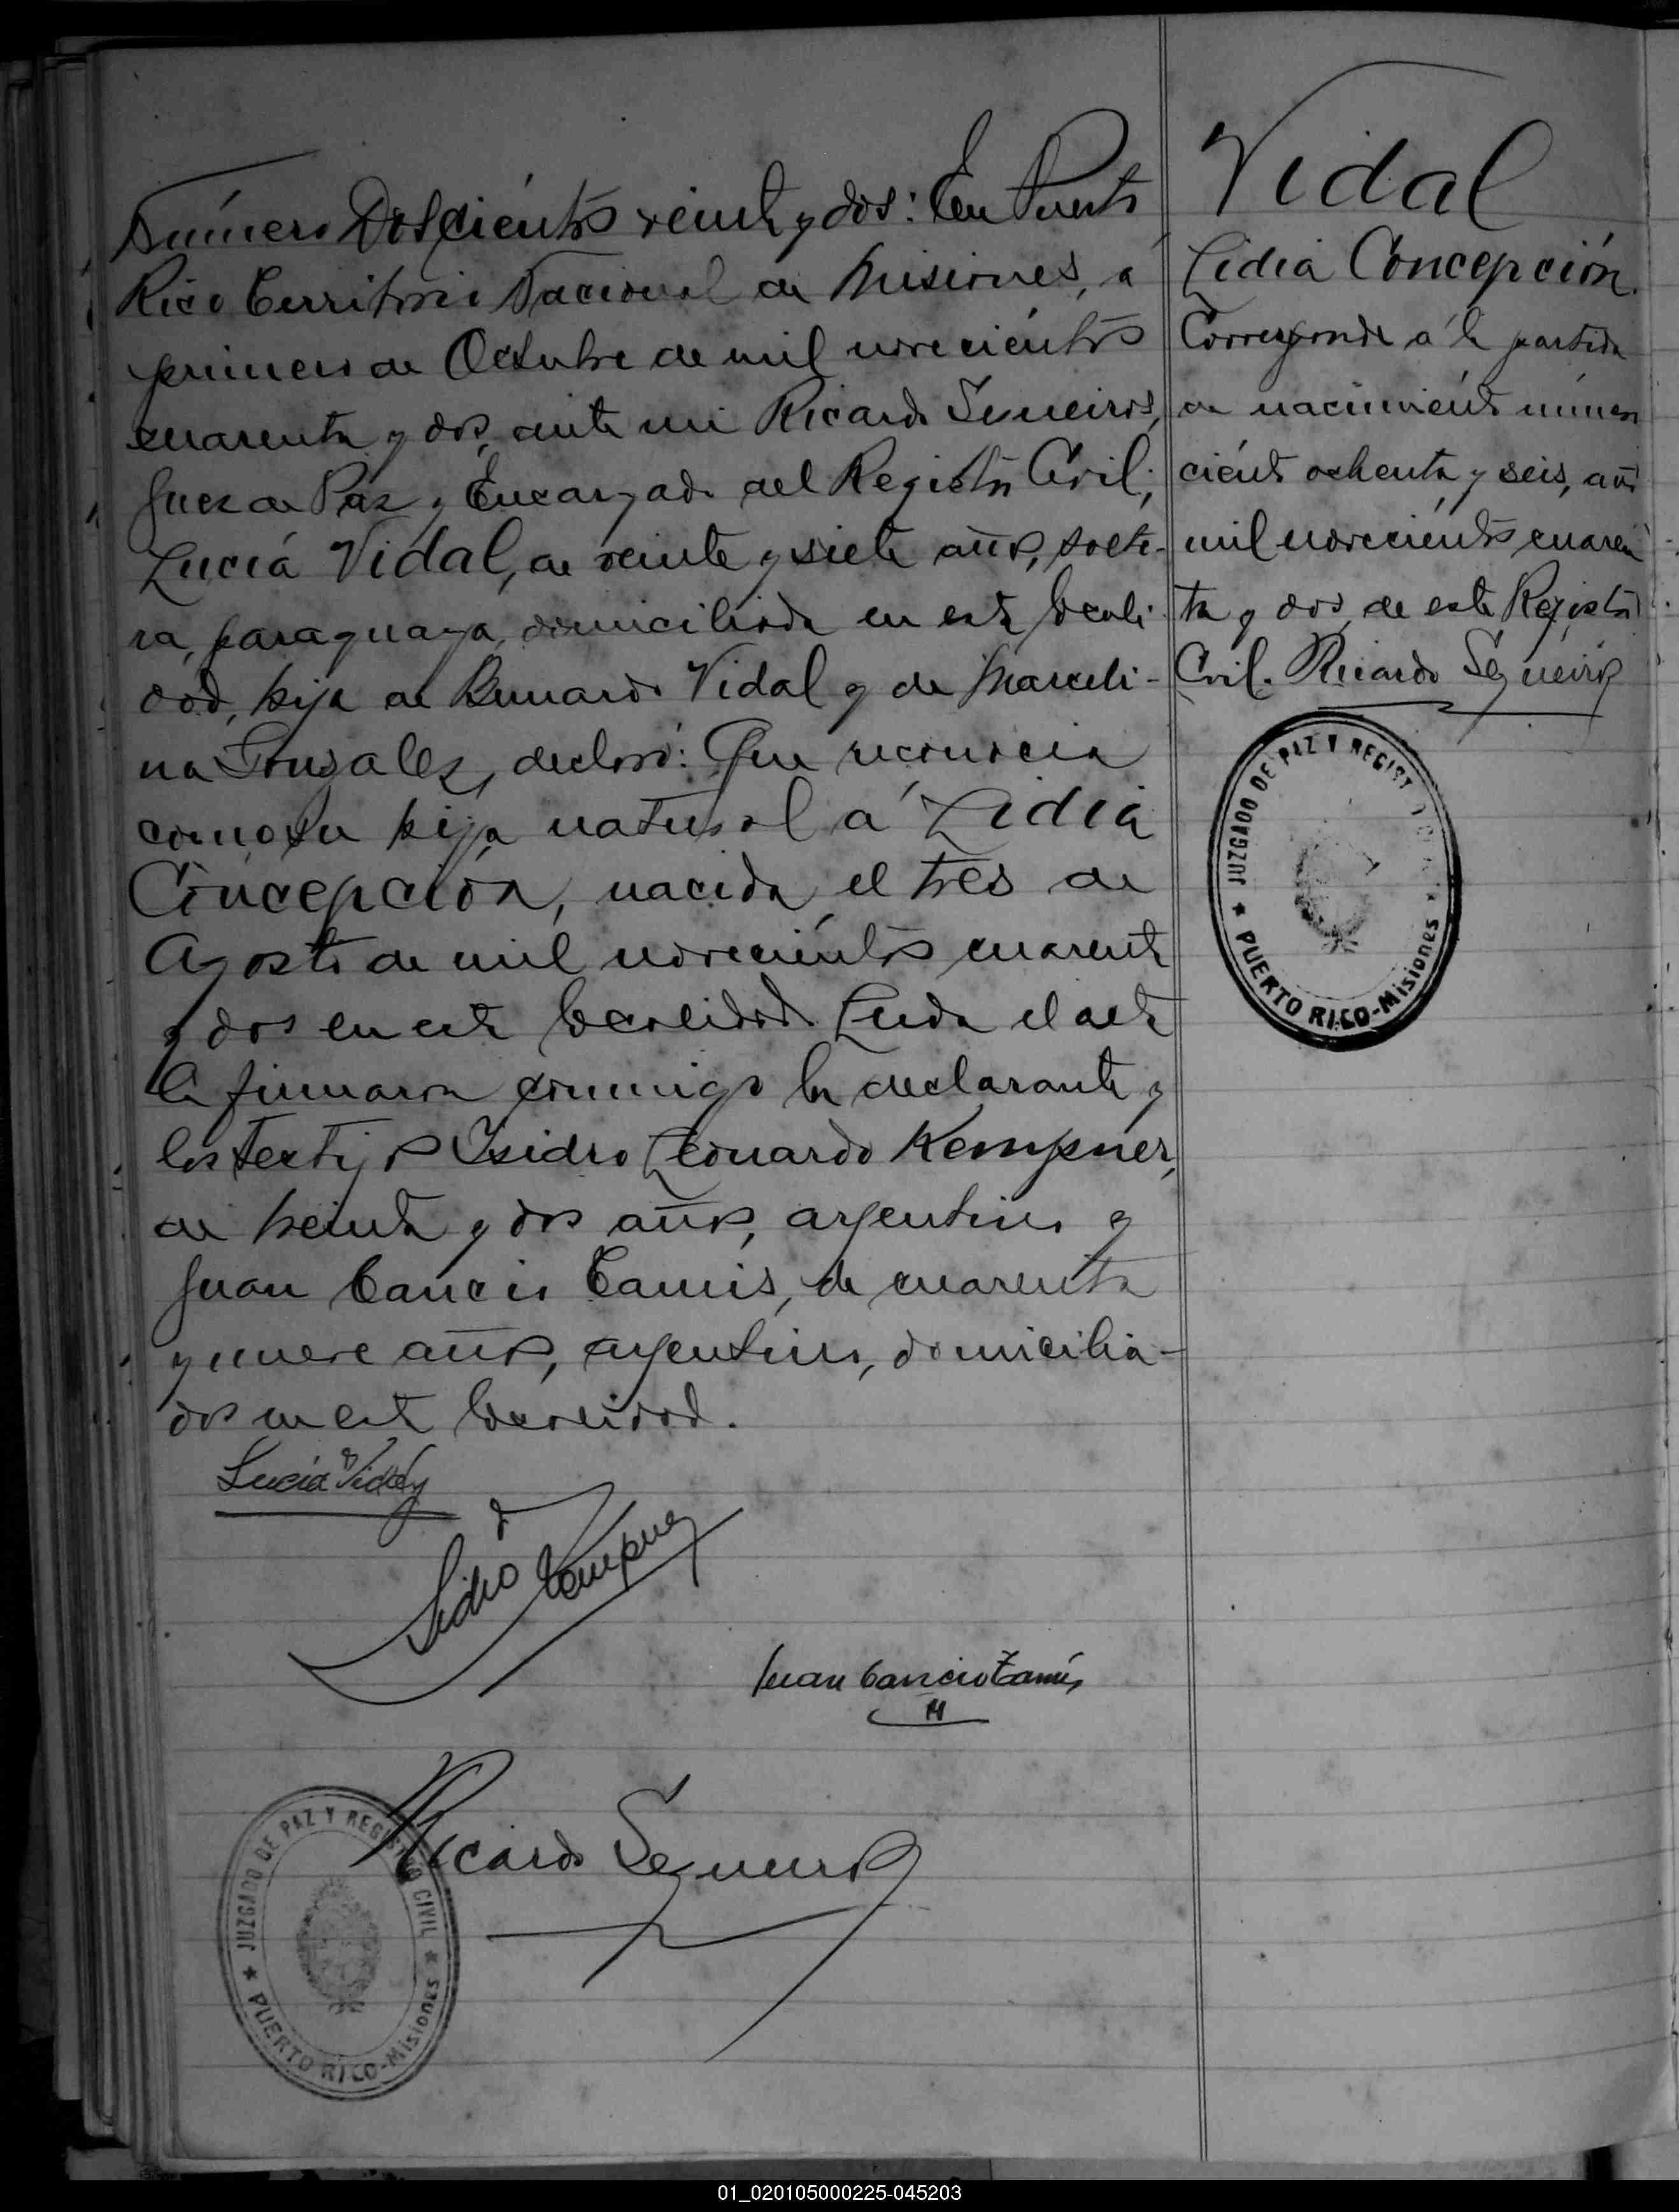 Número Doscientos veinte y dos: En Puerto
Rico Territorio Nacional de Misiones, a
primero de Octubre de mil novecientos
cuarenta y dos, ante mi Ricardo Sequeiros,
Juez de Paz y Encargado del Registro Civil;
Lucía Vidal, de veinte y siete años, solte-
ra, paraguaya, domiciliada en esta locali-
dad, hija de Bernardo Vidal y de Marceli-
na Gonzales, declaró: Que reconocia
como su hija natural a Lidia
Concepción, nacida el tres de
Agosto de mil novecientos cuarenta
y dos en esta localidad. Leida el acta
la firmaron conmigo la declarante y
los testigos Isidro Leonardo Kempner,
de treinta y dos años, argentino y
Juan Cancio Tamis, de cuarenta
y nueve años, argentino, domicilia-
dos en esta localidad.
Lucía Vidal
Isidro Kempner
Juan Cancio Tamis
Ricardo Sequeiros
JUZGADO DE PAZ Y REGISTRO CIVIL
PUERTO RICO-Misiones
Vidal
Lidia Concepción.
Corresponde a la partida
de nacimiento número
ciento ochenta y seis, año
mil novecientos cuaren
ta y dos, de este Registro
Civil. Ricardo Sequeiros
JUZGADO DE PAZ Y REGIST
PUERTO RICO-Misiones
01_020105000225-045203